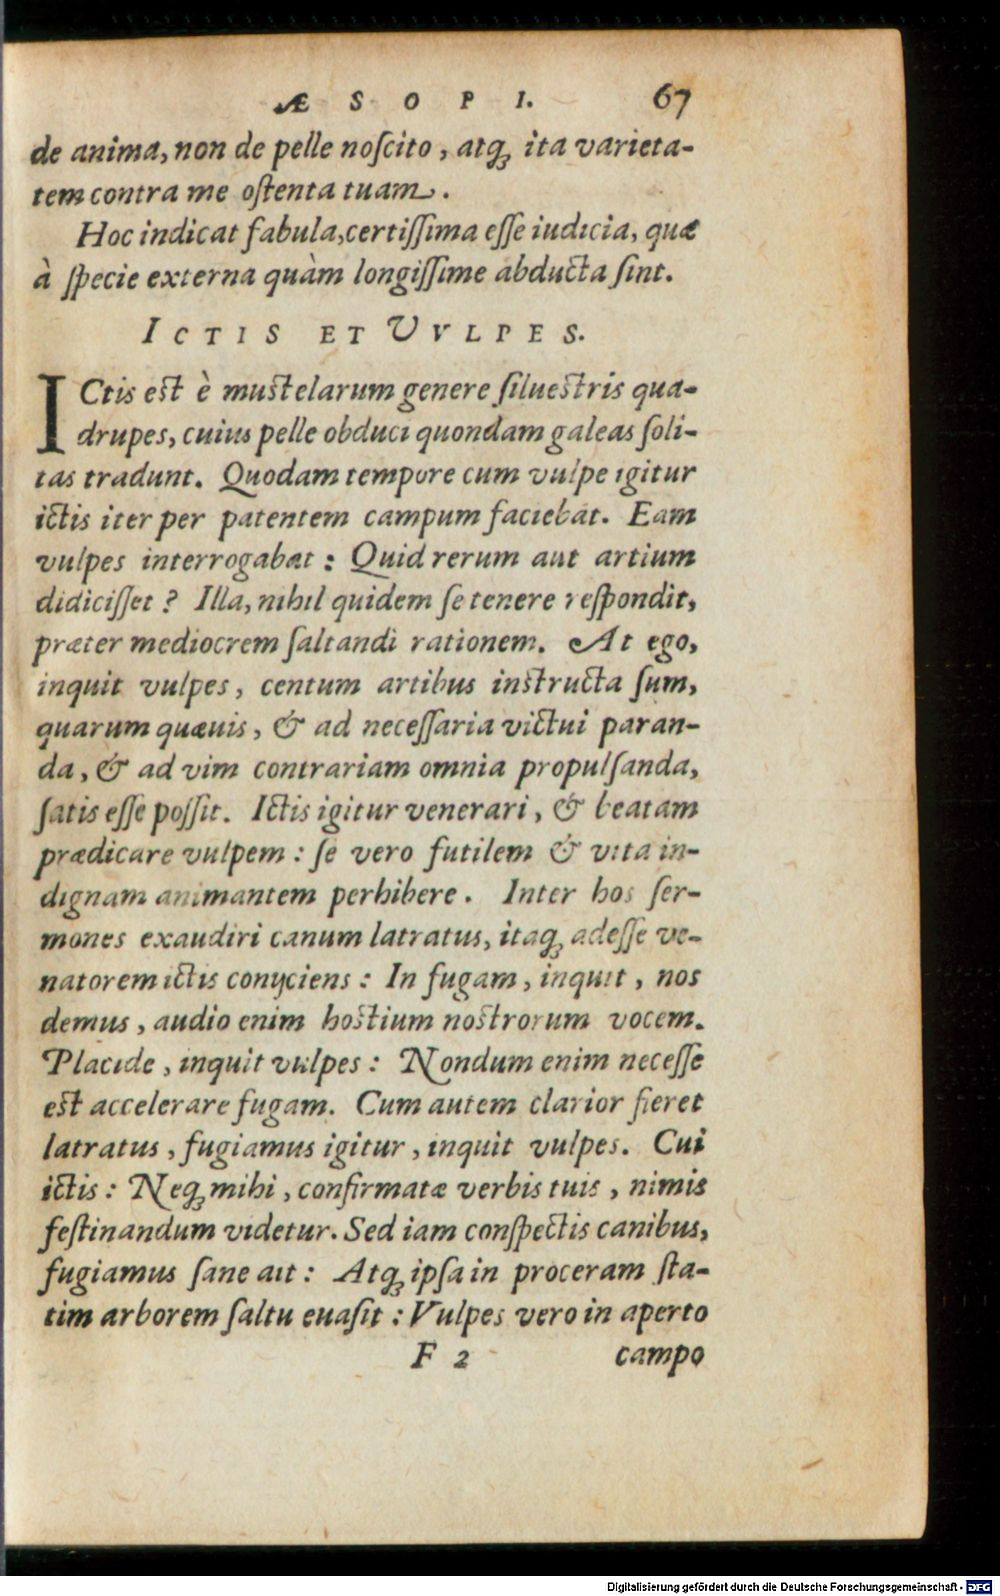 ÆSOPI. 67
de anima, non de pelle noſcito, atq́ꝫ ita varieta-
tem contra me oſtenta tuam.
Hoc indicat fabula, certiſſima eſſe iudicia, quæ
à ſpecie externa quàm longiſſime abducta ſint.
ICTIS ET VVLPES.
ICtis eſt è muſtelarum genere ſilueſtris qua-
drupes, cuius pelle obduci quondam galeas ſoli-
tas tradunt. Quodam tempore cum vulpe igitur
ictis iter per patentem campum faciebat. Eam
vulpes interrogabat: Quid rerum aut artium
didiciſſet? Illa, nihil quidem ſe tenere reſpondit,
præter mediocrem ſaltandi rationem. At ego,
inquit vulpes, centum artibus inſtructa ſum,
quarum quæuis, & ad neceſſaria victui paran-
da, & ad vim contrariam omnia propulſanda,
ſatis eſſe poſſit. Ictis igitur venerari, & beatam
prædicare vulpem: ſe vero futilem & vita in-
dignam animantem perhibere. Inter hos ſer-
mones exaudiri canum latratus, itaqꝫ adeſſe ve-
natorem ictis conijciens: In fugam, inquit, nos
demus, audio enim hoſtium noſtrorum vocem.
Placide, inquit vulpes: Nondum enim neceſſe
eſt accelerare fugam. Cum autem clarior fieret
latratus, fugiamus igitur, inquit vulpes. Cui
ictis: Neqꝫ mihi, confirmatæ verbis tuis, nimis
feſtinandum videtur. Sed iam conſpectis canibus,
fugiamus ſane ait: Atqꝫ ipſa in proceram ſta-
tim arborem ſaltu euaſit: Vulpes vero in aperto
F 2 campo
Digitalisierung gefördert durch die Deutsche Forschungsgemeinschaft - DFG